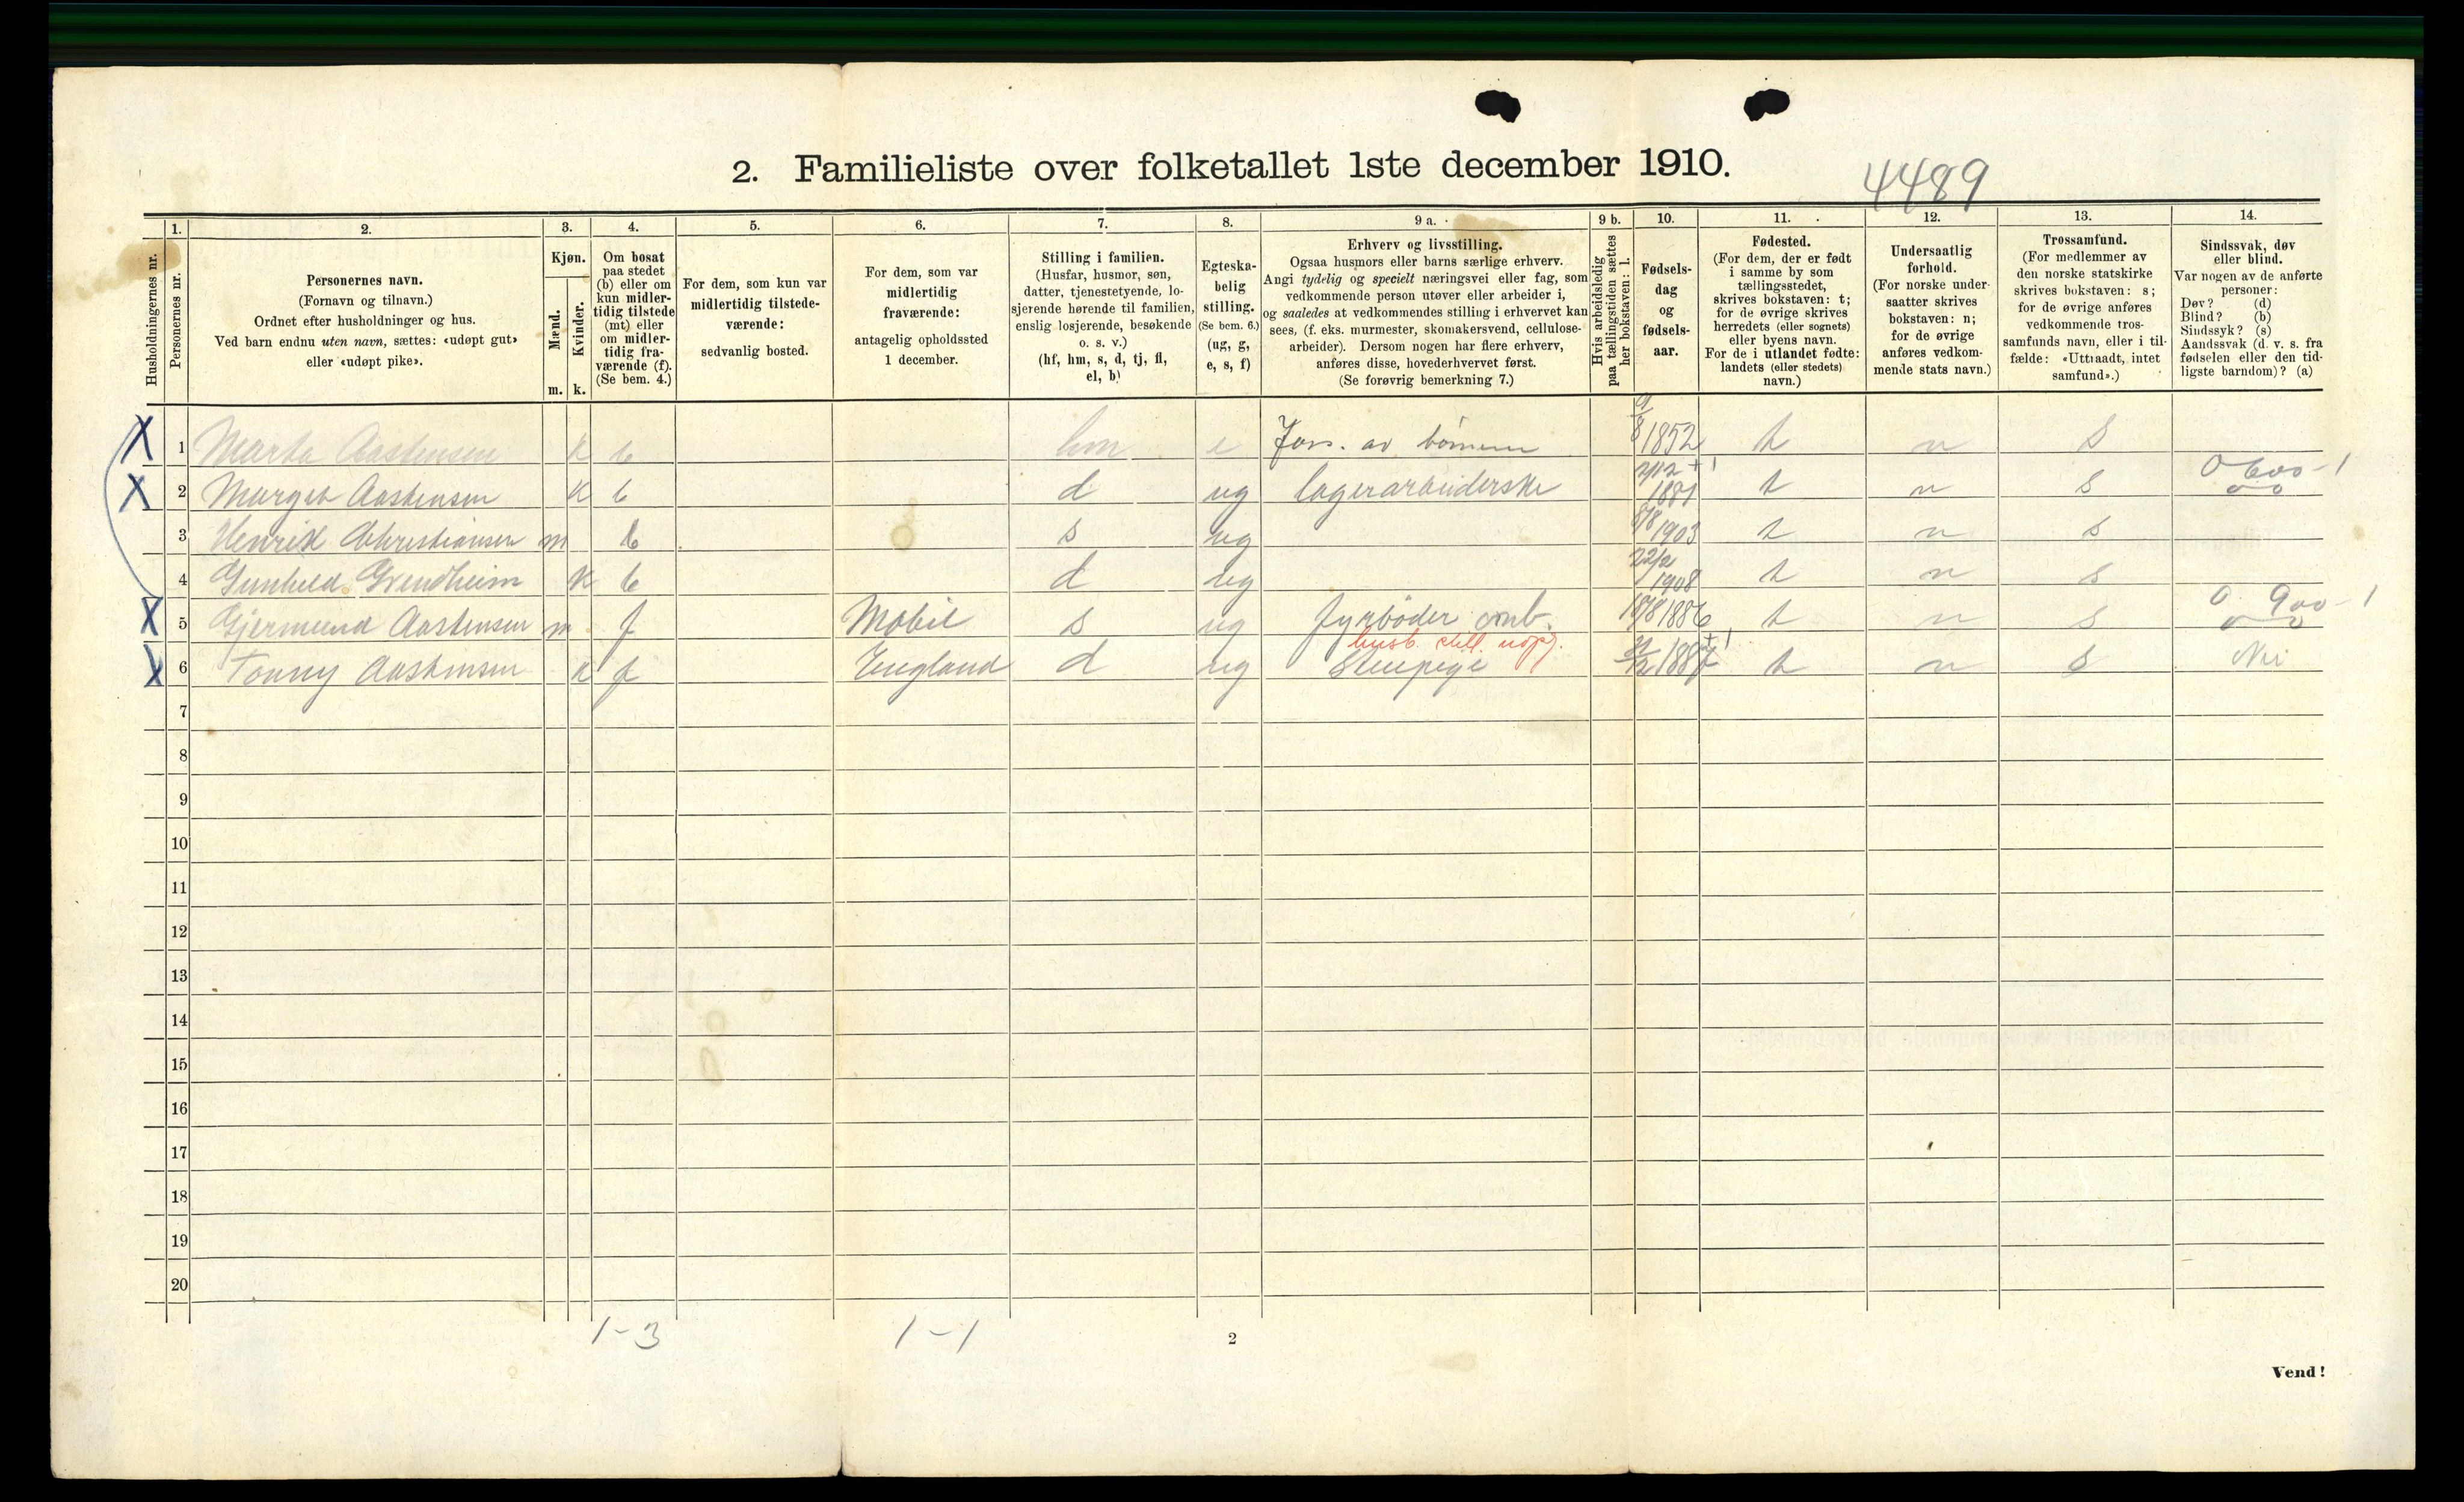 2. Familieliste over folketallet 1ste december 1910.
4489
Husholdningernes nr.
1.
Personernes nr.
2.
Personernes navn.
(Fornavn og tilnavn.)
Ordnet efter husholdninger og hus.
Ved barn endnu uten navn, sættes: «udøpt gut»
eller «udøpt pike».
3.
Kjøn.
Mænd.
Kvinder.
m. k.
4.
Om bosat
paa stedet
(b) eller om
kun midler-
tidig tilstede
(mt) eller
om midler-
tidig fra-
værende (f).
(Se bem. 4.)
5.
For dem, som kun var
midlertidig tilstede-
værende:
sedvanlig bosted.
6.
For dem, som var
midlertidig
fraværende:
antagelig opholdssted
1 december.
7.
Stilling i familien.
(Husfar, husmor, søn,
datter, tjenestetyende, lo-
sjerende hørende til familien,
enslig losjerende, besøkende
o. s. v.)
(hf, hm, s, d, tj, fl,
el, b)
8.
Egteska-
belig
stilling.
(Se bem. 6.)
(ug, g,
e, s, f)
9 a.
Erhverv og livsstilling.
Ogsaa husmors eller barns særlige erhverv.
Angi tydelig og specielt næringsvei eller fag, som
vedkommende person utøver eller arbeider i,
og saaledes at vedkommendes stilling i erhvervet kan
sees, (f. eks. murmester, skomakersvend, cellulose-
arbeider). Dersom nogen har flere erhverv,
anføres disse, hovederhvervet først.
(Se forøvrig bemerkning 7.)
9 b.
Hvis arbeidsledig
paa tællingstiden sættes
her bokstaven: l.
10.
Fødsels-
dag
og
fødsels-
aar.
11.
Fødested.
(For dem, der er født
i samme by som
tællingsstedet,
skrives bokstaven: t;
for de øvrige skrives
herredets (eller sognets)
eller byens navn.
For de i utlandet fødte:
landets (eller stedets)
navn.)
12.
Undersaatlig
forhold.
(For norske under-
saatter skrives
bokstaven: n;
for de øvrige
anføres vedkom-
mende stats navn.)
13.
Trossamfund.
(For medlemmer av
den norske statskirke
skrives bokstaven: s;
for de øvrige anføres
vedkommende tros-
samfunds navn, eller i til-
fælde: «Uttraadt, intet
samfund».)
14.
Sindssvak, døv
eller blind.
Var nogen av de anførte
personer:
Døv? (d)
Blind? (b)
Sindssyk? (s)
Aandssvak (d. v. s. fra
fødselen eller den tid-
ligste barndom)? (a)
X 1 Marta Aastensen k b hm e Fors. av børnene 1852 t n s
X 2 Margit Aastensen k b d ug lagerarbeiderske 2/12 1881 t n s 0 600 - 1
3 Henrik Christiansen m b s ug 8/8 1903 t n s
4 Gunhild Grendheim k b d ug 22/2 1908 t n s
X 5 Gjermund Aastensen m f Mobil s ug fyrbøder omb. 18/8 1886 t n s 0 900 - 1
husb. still. uopg.
X 6 Tonny Aastensen k f England d ug Stuepige 1887 t n s Nei
7
8
9
10
11
12
13
14
15
16
17
18
19
20
1 - 3
1 - 1
2
Vend!